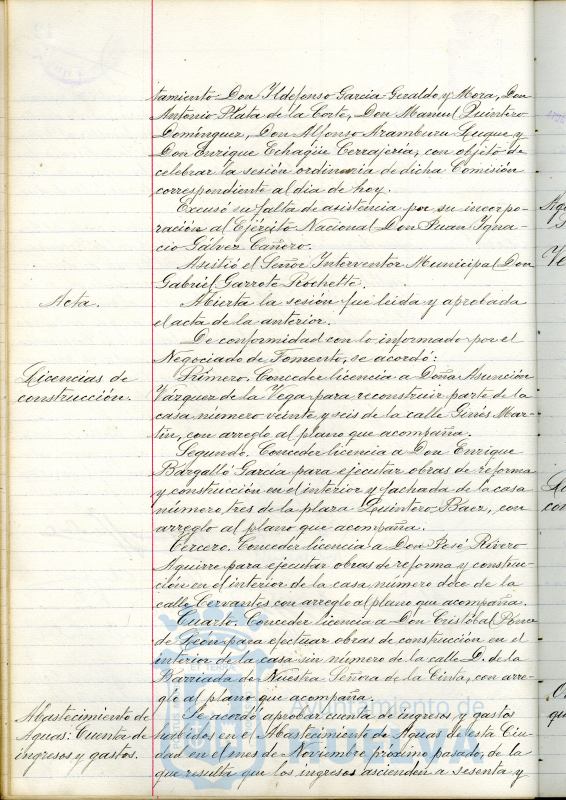 tamiento Don Ildefonso Garcia Geraldo y Mora, Don
Antonio Plata de la Corte, Don Manuel Quintero
Dominguez, Don Alfonso Aramburu Luque y
Don Enrique Echagüe Cerrajeria, con objeto de
celebrar la sesión ordinaria de dicha Comisión
correspondiente al dia de hoy.
Excusó su falta de asistencia por su incorpo-
ración al Ejército Nacional Don Juan Igna-
cio Gálvez Cañero.
Asistió el Señor Interventor Municipal Don
Gabriel Garrote Rochette.
Acta.
Abierta la sesión fue leida y aprobada
el acta de la anterior.
De conformidad con lo informado por el
Negociado de Fomento, se acordó:
Licencias de
construcción.
Primero. Conceder licencia a Doña Asunción
Vázquez de la Vega para reconstruir parte de la
casa número veinte y seis de la calle Ginés Mar-
tín, con arreglo al plano que acompaña.
Segundo. Conceder licencia a Don Enrique
Bargalló Garcia para ejecutar obras de reforma
y construcción en el interior y fachada de la casa
número tres de la plaza Quintero Baez, con
arreglo al plano que acompaña.
Tercero. Conceder licencia a Don José Rivero
Aguirre para ejecutar obras de reforma y construc-
ción en el interior de la casa número doce de la
calle Cervantes con arreglo al plano que acompaña.
Cuarto. Conceder licencia a Don Cristóbal Ponce
de Leon para efectuar obras de construcción en el
interior de la casa sin número de la calle D. de la
Barriada de Nuestra Señora de la Cinta, con arre-
glo al plano que acompaña.
Abastecimiento de
Aguas: Cuenta de
ingresos y gastos.
Ayuntamiento de
Se acordó aprobar cuenta de ingresos y gastos
habidos en el Abastecimiento de Aguas de esta Ciu-
dad en el mes de Noviembre próximo pasado, de la
que resulta que los ingresos ascienden a sesenta y